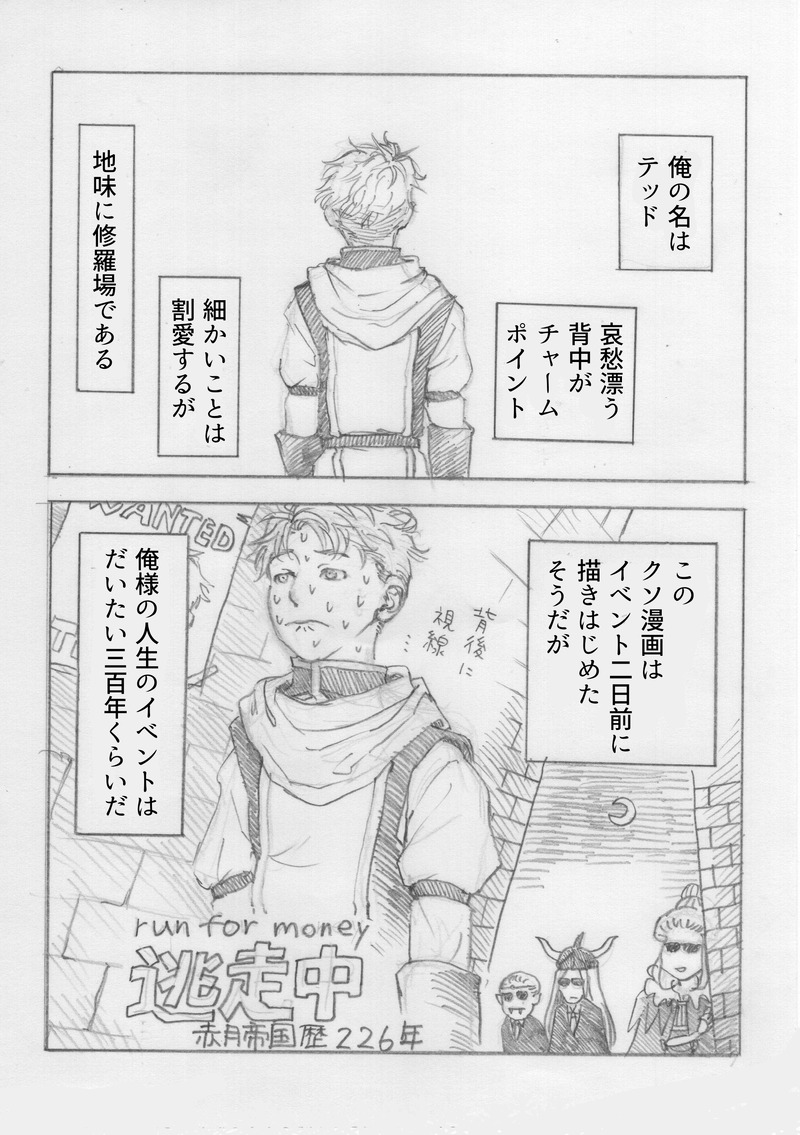 俺の名は
テッド
哀愁漂う
背中が
チャーム
ポイント
細かいことは
割愛するが
地味に修羅場である
この
クソ漫画は
イベント二日前に
描きはじめた
そうだが
背後に
視線…
WANTED
俺様の人生のイベントは
だいたい三百年くらいだ
run for money
逃走中
赤月帝国歴226年